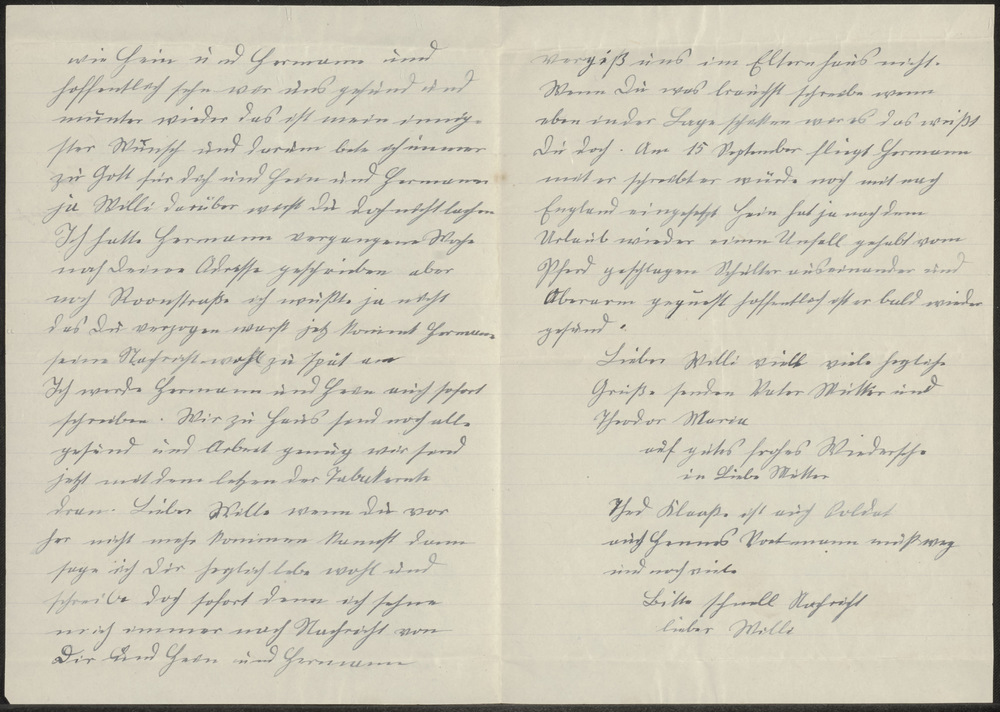 wie Hein und Hermann und
hoffentlich sehn wir uns gesund und
munter wieder das ist mein innig-
ster Wunsch und darum bete ich immer
zu Gott für dich und Hein und Hermann
ja Willi darüber wirst Du doch nicht lachen
Ich hatte Hermann vergangene Woche
nach Deine Adresse geschrieben aber
noch Roonstraße ich wußte ja nicht
das Du verzogen warst jetz kommt Hermann
seine Nachricht wohl zu spät an
Ich werde Hermann und Hein auch sofort
schreiben. Wir zu Haus sind noch alle
gesund und Arbeit genug wir sind
jetzt mit dem letzen der Tabakernte
dran. Lieber Willi wenn Du vor
her nicht mehr kommen kannst dann
sage ich Dir herzlich lebe wohl und
schreibe doch sofort denn ich sehne
mich immer nach Nachricht von
Dir und Hein und Hermann
vergiß uns im Elternhaus nicht.
Wenn Du was brauchst schreibe wenn
eben in der Lage schicken wir es das weißt
Du doch. Am 15 September fliegt Hermann
mit er schreibt er würde noch mit nach
England eingesetzt Hein hat ja nach dem
Urlaub wieder einen Unfall gehabt vom
Pferd geschlagen Schulter auseinander und
Oberarm gequescht hoffentlich ist er bald wieder
gesund.
Lieber Willi viele viele herzliche
Grüße senden Vater Mutter und
Theodor Maria
auf gutes frohes Wiedersehn
in Liebe Mutter
Theo Klaaß ist auch Soldat
auch Hannes muß weg
und noch viele
Bitte schnell Nachricht
lieber Willi